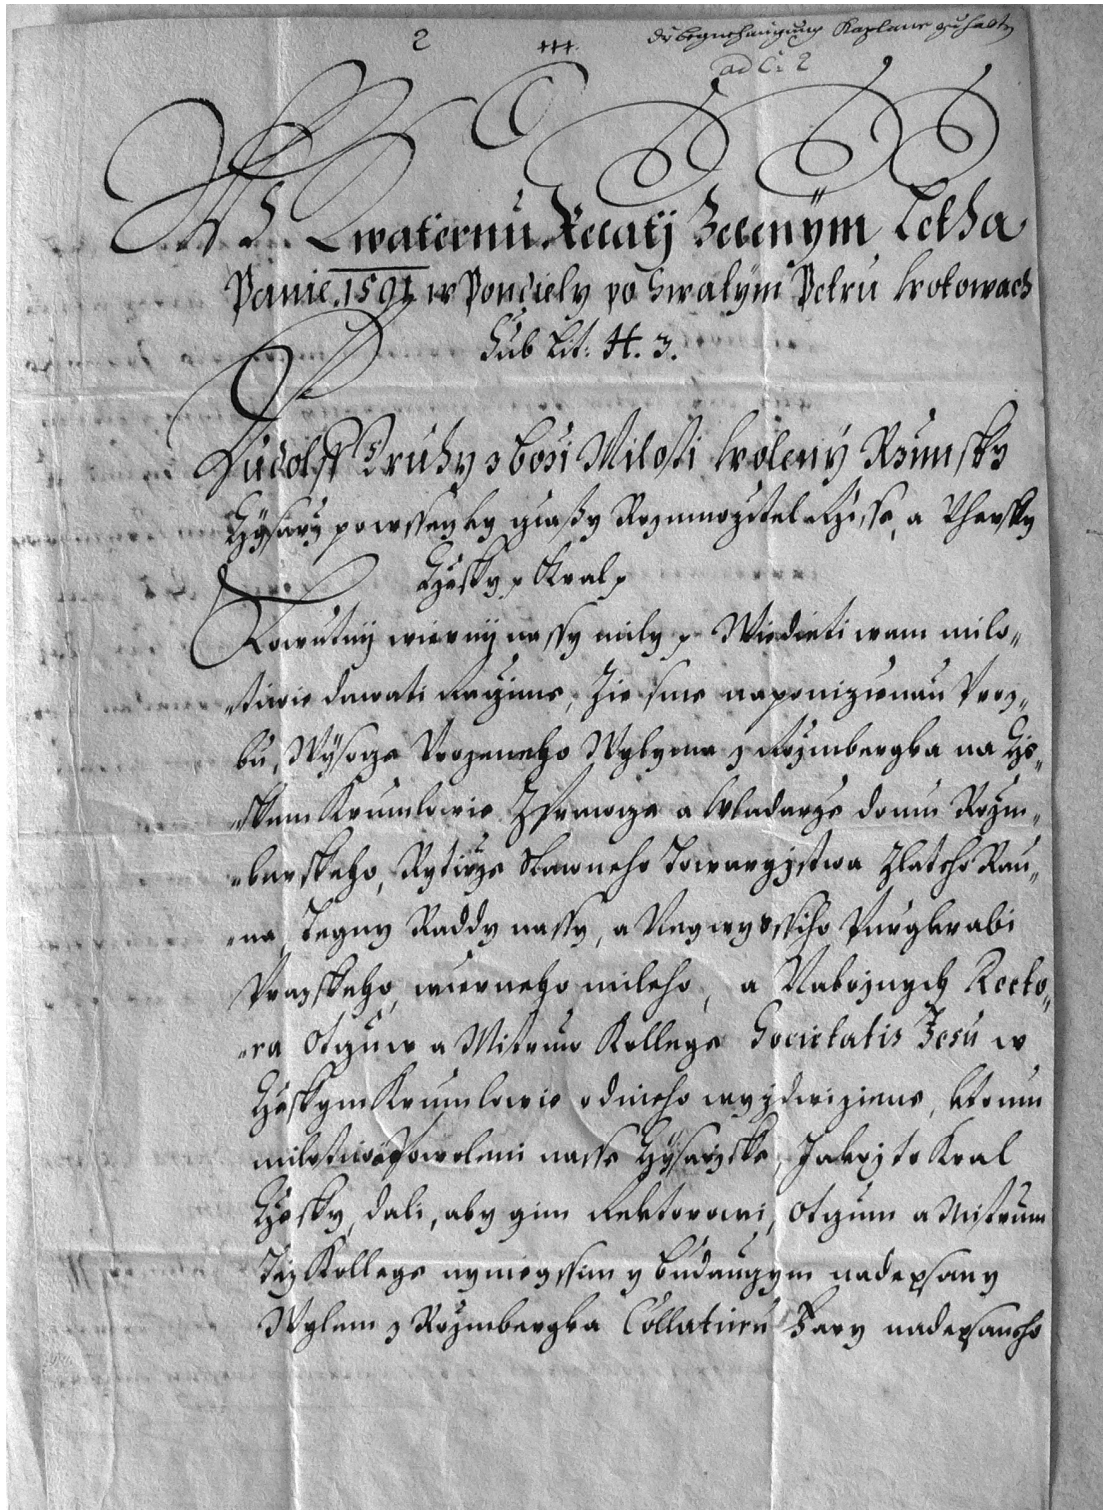 2 +++.
ad C: 2
W S. Kwaternu Relatij Zelenÿm Letha
Panie 1591 w Pondiely po Swatym Petru w okowach
Sub Lit: H. 3.
Rudolff Druhy z bozi Milosti woleny Rzimsky
Czÿsarz po wsseczky czasy Rozmnozitel Rzisse, a Uhersky
Czesky p Kral p
wierny nass mily p Wiedieti wam milo„
„stiwie dawati raczime, Zie sme na ponizenau Proz„
bu, Wÿsocze Urozeneho Wylyma z Rozmbergka na Cze„
„skem Krumlowie a Wladarze domu Rozm„
„berskeho, Rytirze Slawneho Towarzistwa Zlateho Rau„
„na, Tegny Raddy nassy, a Neywyssiho Purgkrabi
Prazskeho, wierneho mileho, a Nabozných Recto„
„ra Otczuw a Mistruw Kollege Societatis Jesu w
Czeskym Krumlowie od nieho wyzdwiziene, k tomu
milostiwé powoleni nasse Czÿsarzske, Jakozto Kral
Czesky, dali, aby gim Rektorowi, Otczum a Mistrum
Tez Kollege nyniegssim y budauczym nadepsany
Wylem z Rozmbergka Collaturu Fary nadepsaneho